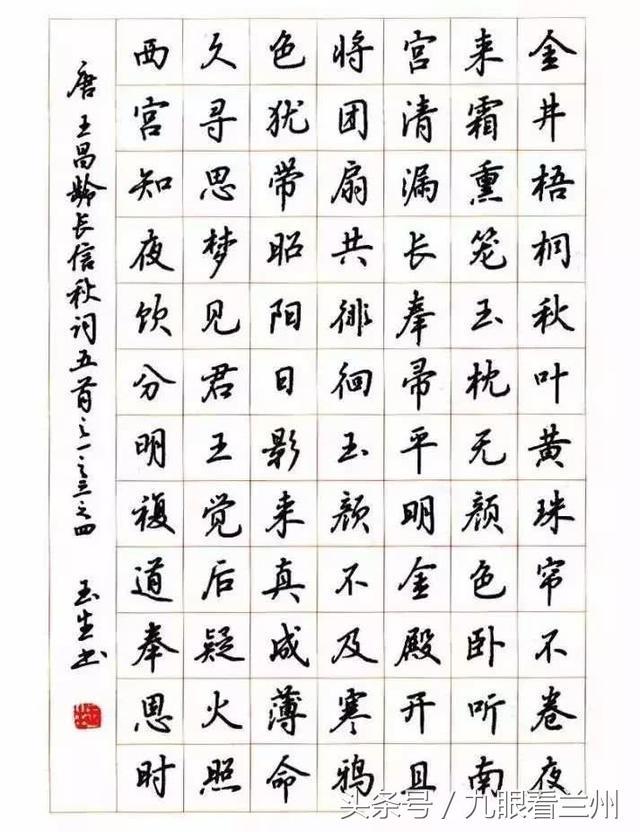 金井梧桐秋叶黄珠帘不卷夜
来霜熏笼玉枕无颜色卧听南
宫清漏长奉帚平明金殿开且
将团扇共徘徊玉颜不及寒鸦
色犹带昭阳日影来真成薄命
久寻思梦见君王觉后疑火照
西宫知夜饮分明複道奉恩时
唐王昌龄长信秋词五首之一之三之四 玉生书
头条号 / 九眼看兰州